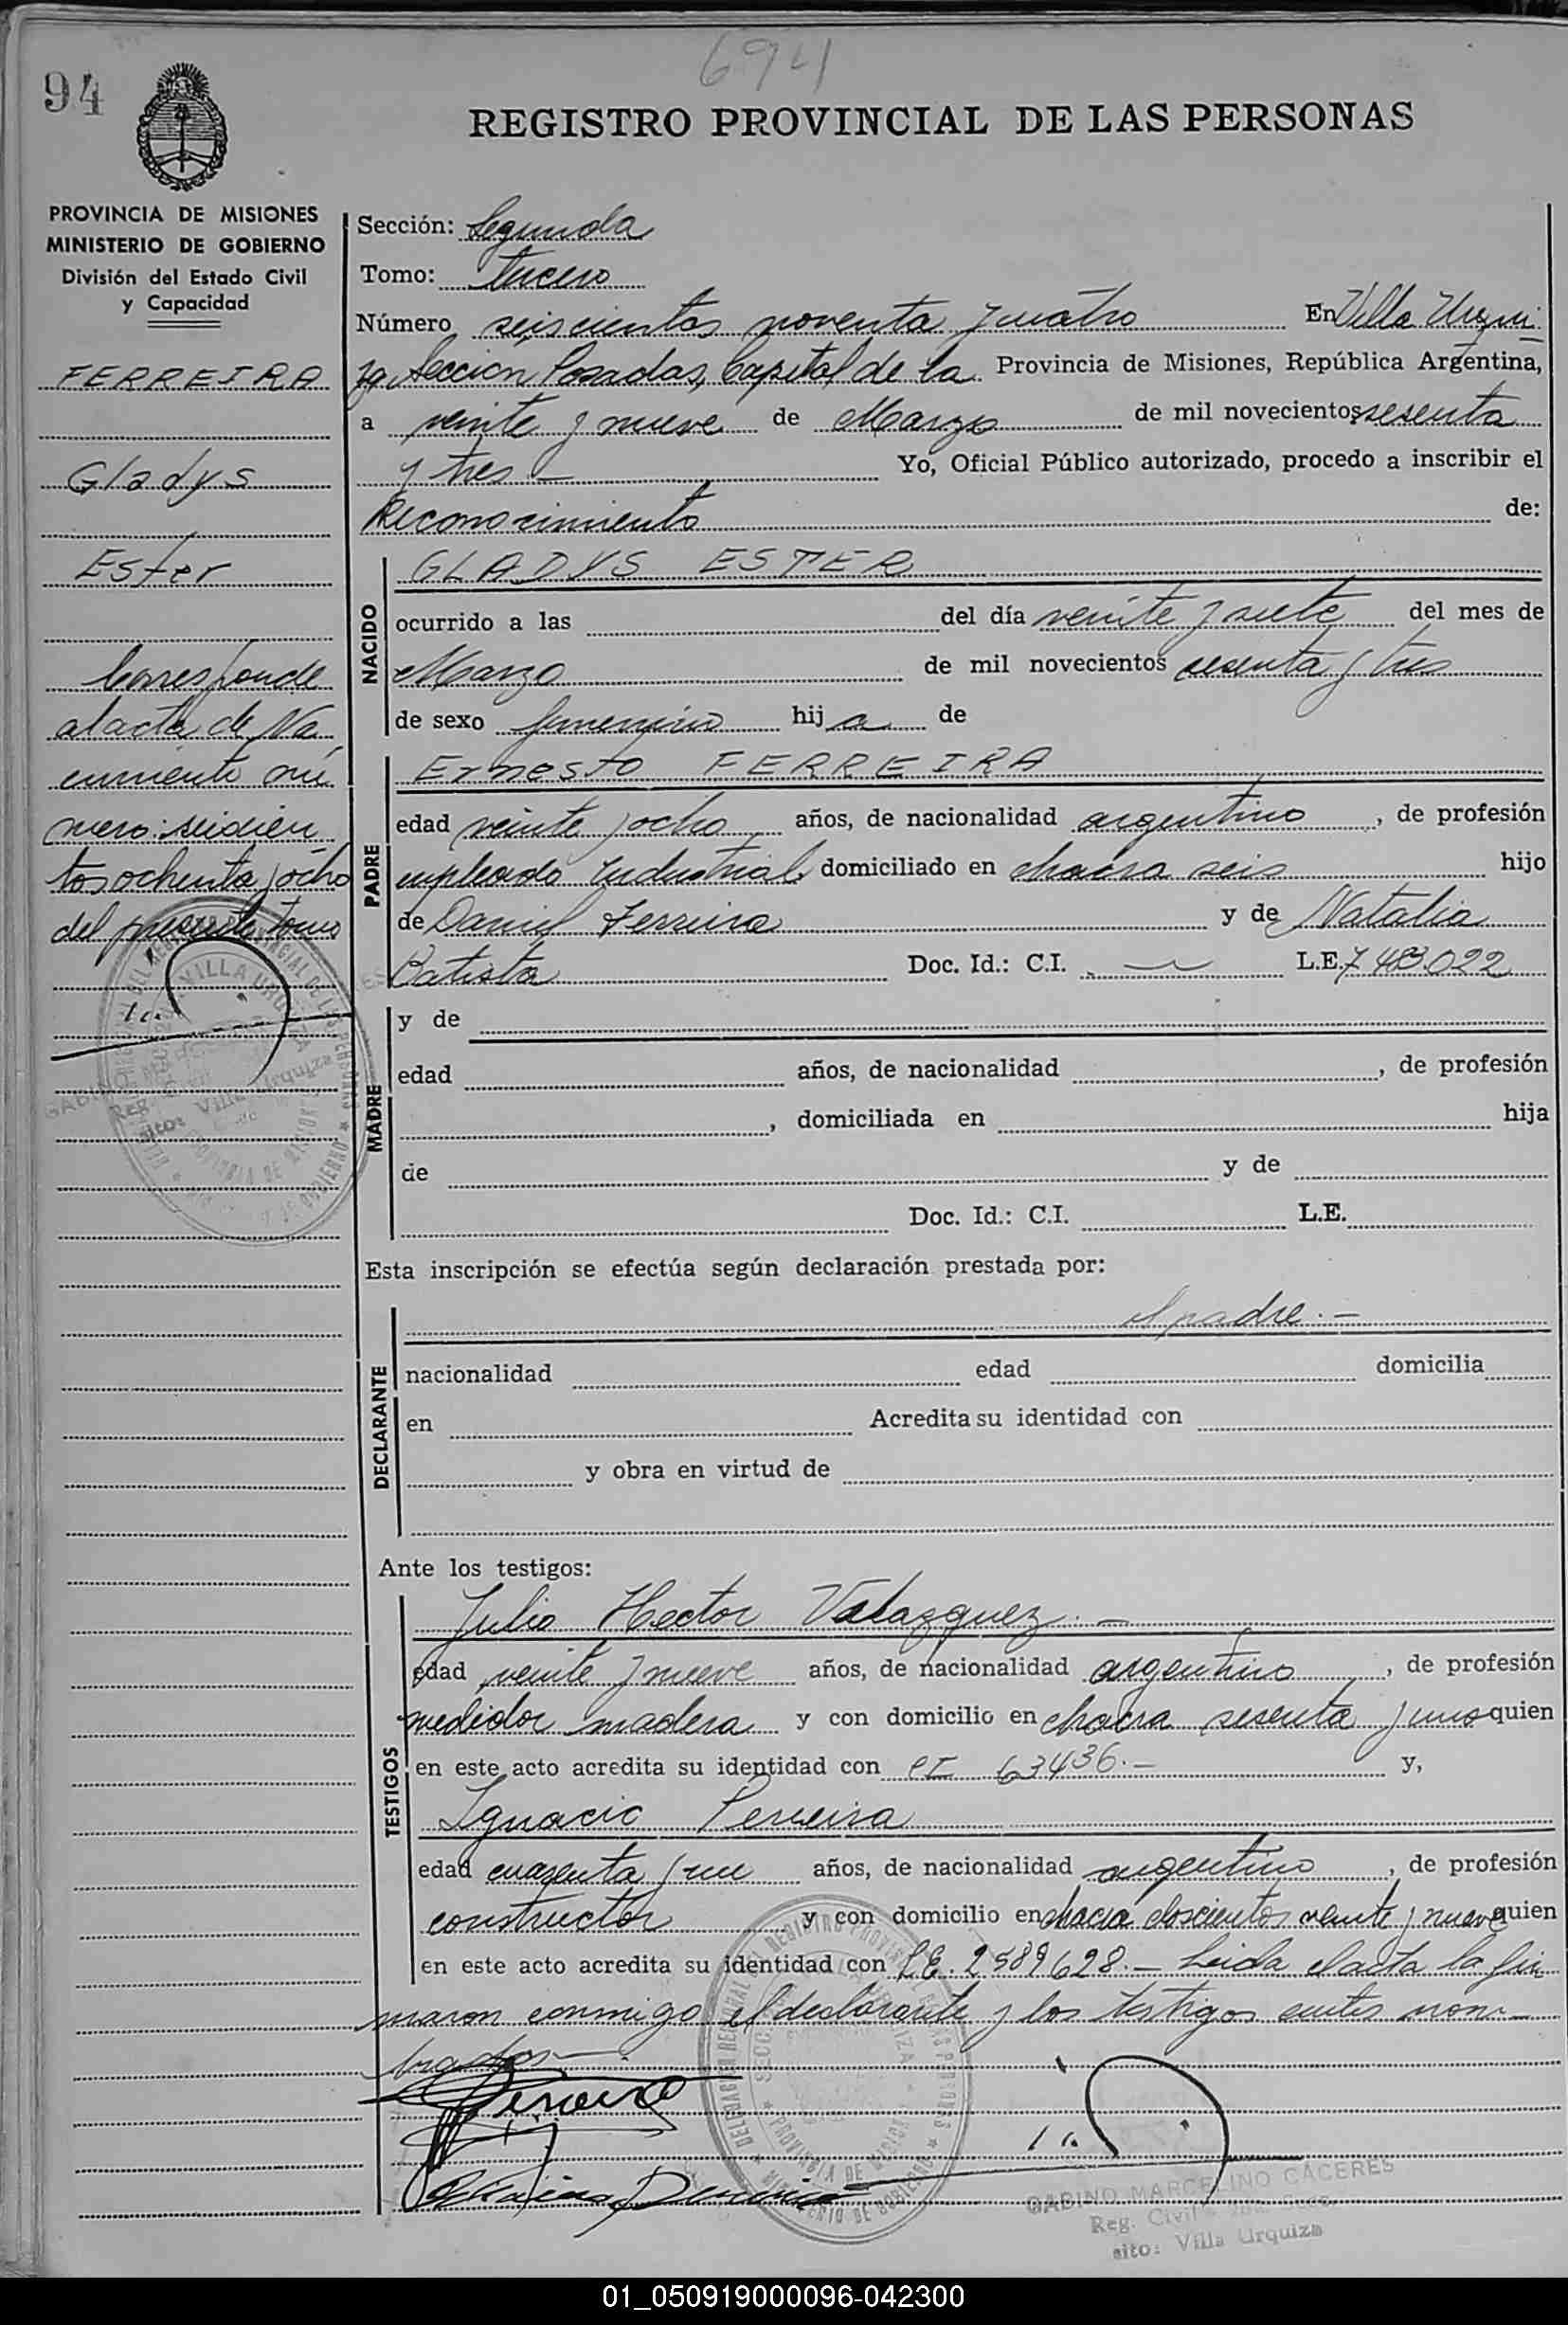 694
94
REGISTRO PROVINCIAL DE LAS PERSONAS
PROVINCIA DE MISIONES
MINISTERIO DE GOBIERNO
División del Estado Civil
y Capacidad
FERREIRA
Gladys
Ester
Corresponde
al acta de Na
cimiento nú
mero: seiscien
tos ochenta y ocho
del presente tomo
Sección: Segunda
Tomo: tercero
Número seiscientos noventa y cuatro En Villa Urqui
za Sección Posadas, Capital de la Provincia de Misiones, República Argentina,
a veinte y nueve de Marzo de mil novecientos sesenta
y tres.- Yo, Oficial Público autorizado, procedo a inscribir el
Reconocimiento de:
NACIDO
GLADYS ESTER
ocurrido a las del día veinte y siete del mes de
Marzo de mil novecientos sesenta y tres
de sexo femenino hij a de
PADRE
Ernesto FERREIRA
edad veinte y ocho años, de nacionalidad argentino, de profesión
empleado Industrial, domiciliado en chacra seis hijo
de Daniel Ferreira y de Natalia
Batista Doc. Id.: C.I. — L.E. 7.483.022
MADRE
y de
edad años, de nacionalidad , de profesión
, domiciliada en hija
de y de
Doc. Id.: C.I. L.E.
Esta inscripción se efectúa según declaración prestada por:
DECLARANTE
el padre.-
nacionalidad edad domicilia
en Acredita su identidad con
y obra en virtud de
Ante los testigos:
TESTIGOS
Julio Hector Valazquez.-
edad veinte y nueve años, de nacionalidad argentino, de profesión
medidor madera y con domicilio en chacra sesenta y uno quien
en este acto acredita su identidad con CI 63436.- y,
Ignacio Pereira
edad cuarenta y un años, de nacionalidad argentino, de profesión
constructor y con domicilio en chacra doscientos veinte y nueve quien
en este acto acredita su identidad con L.E. 2589628.- Leida el acta la fir
maron conmigo el declarante y los testigos antes nom-
brados.-
GABINO MARCELINO CACERES
Reg. Civil
sito: Villa Urquiza
01_050919000096-042300